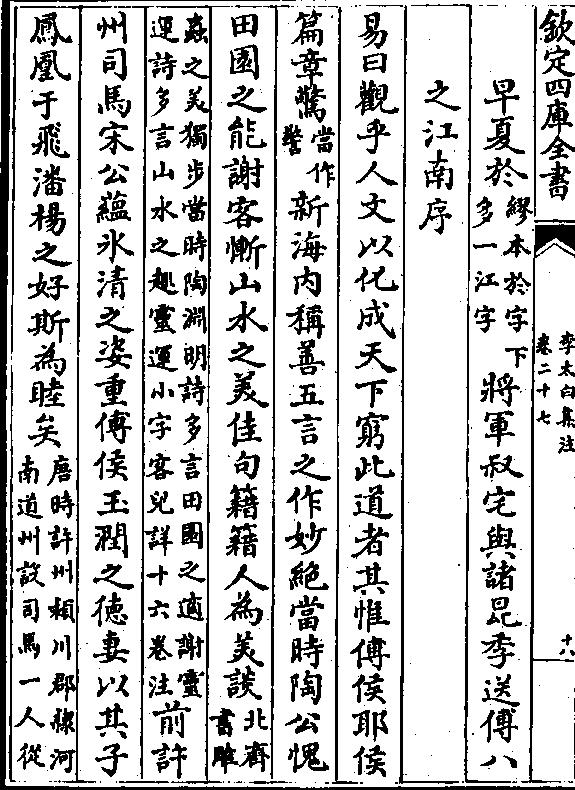 欽定四庫全書
李太白集注
卷二十七
十八
早夏於繆本於字下多一江字將軍叔宅與諸昆季送傅八
之江南序
易曰觀乎人文以化成天下窮此道者其惟傅侯耶侯
篇章驚當作警新海内稱善五言之作妙絶當時陶公愧
田園之能謝客慚山水之美佳句籍籍人為美談北齊書雕
蟲之美獨步當時陶淵明詩多言田園之適謝靈運詩多言山水之趣靈運小字客兒詳十六卷注前許
州司馬宋公蘊氷清之姿重傅侯玉潤之德妻以其子
鳳凰于飛潘楊之好斯為睦矣唐時許州頴川郡隸河南道州設司馬一人從